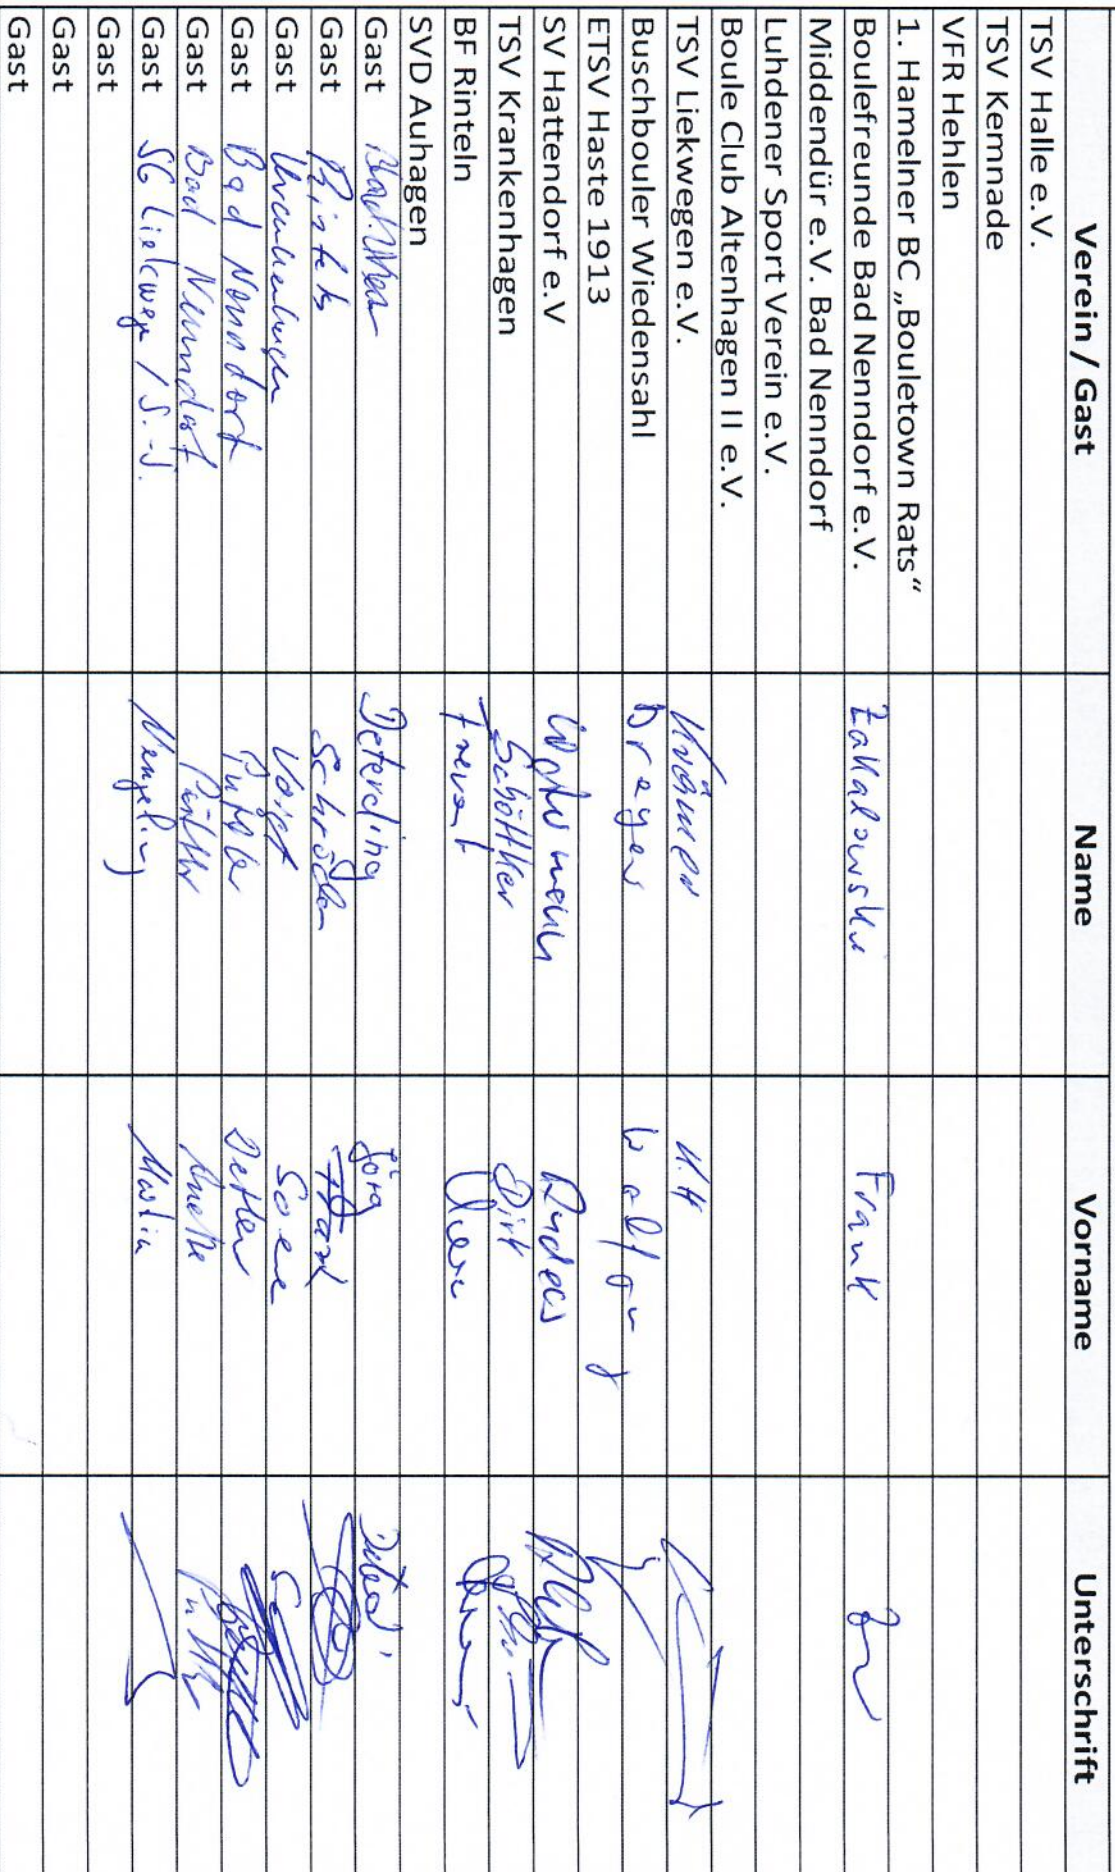 Verein / Gast Name Vorname Unterschrift
TSV Halle e.V.
TSV Kemnade
VFR Hehlen
1. Hamelner BC „Bouletown Rats“
Boulefreunde Bad Nenndorf e.V. Zakalowski Frank
Middendür e.V. Bad Nenndorf
Luhdener Sport Verein e.V.
Boule Club Altenhagen II e.V.
TSV Liekwegen e.V. Krömer U.H
Buschbouler Wiedensahl Dreyer Wolfgang
ETSV Haste 1913
SV Hattendorf e.V Andreas
TSV Krankenhagen Schöttker Dirk
BF Rinteln Frevert
SVD Auhagen
Gast Deterding Jörg
Gast Rinteln Schröder
Gast Krankenhagen Voigt
Gast Bad Nenndorf Püttker Detlev
Gast Bad Nenndorf Püttker Anette
Gast SG Liekwege / S.-J. Mengeling Martin
Gast
Gast
Gast